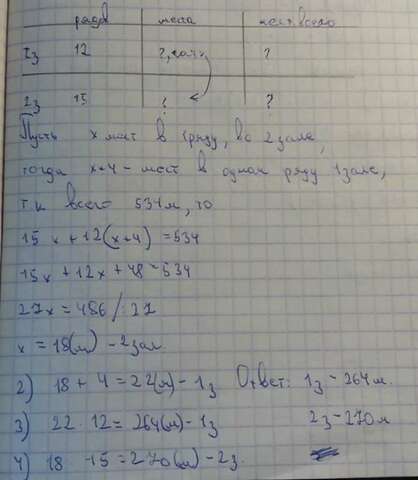 рядов места кол. во
1з 12 ?, на4> ?
2з 15 ? ?
Пусть x мест в 1 ряду, во 2 зале,
тогда x+4 - мест в одном ряду 1 зале,
т.к всего 534 м, то
15x + 12(x+4) = 534
15x + 12x + 48 = 534
27x = 486 /: 27
x = 18(м) - 2 зал
2) 18 + 4 = 22(м) - 1з Ответ: 1з - 264 м.
3) 22 · 12 = 264(м) - 1з 2з - 270 м
4) 18 · 15 = 270(м) - 2з.